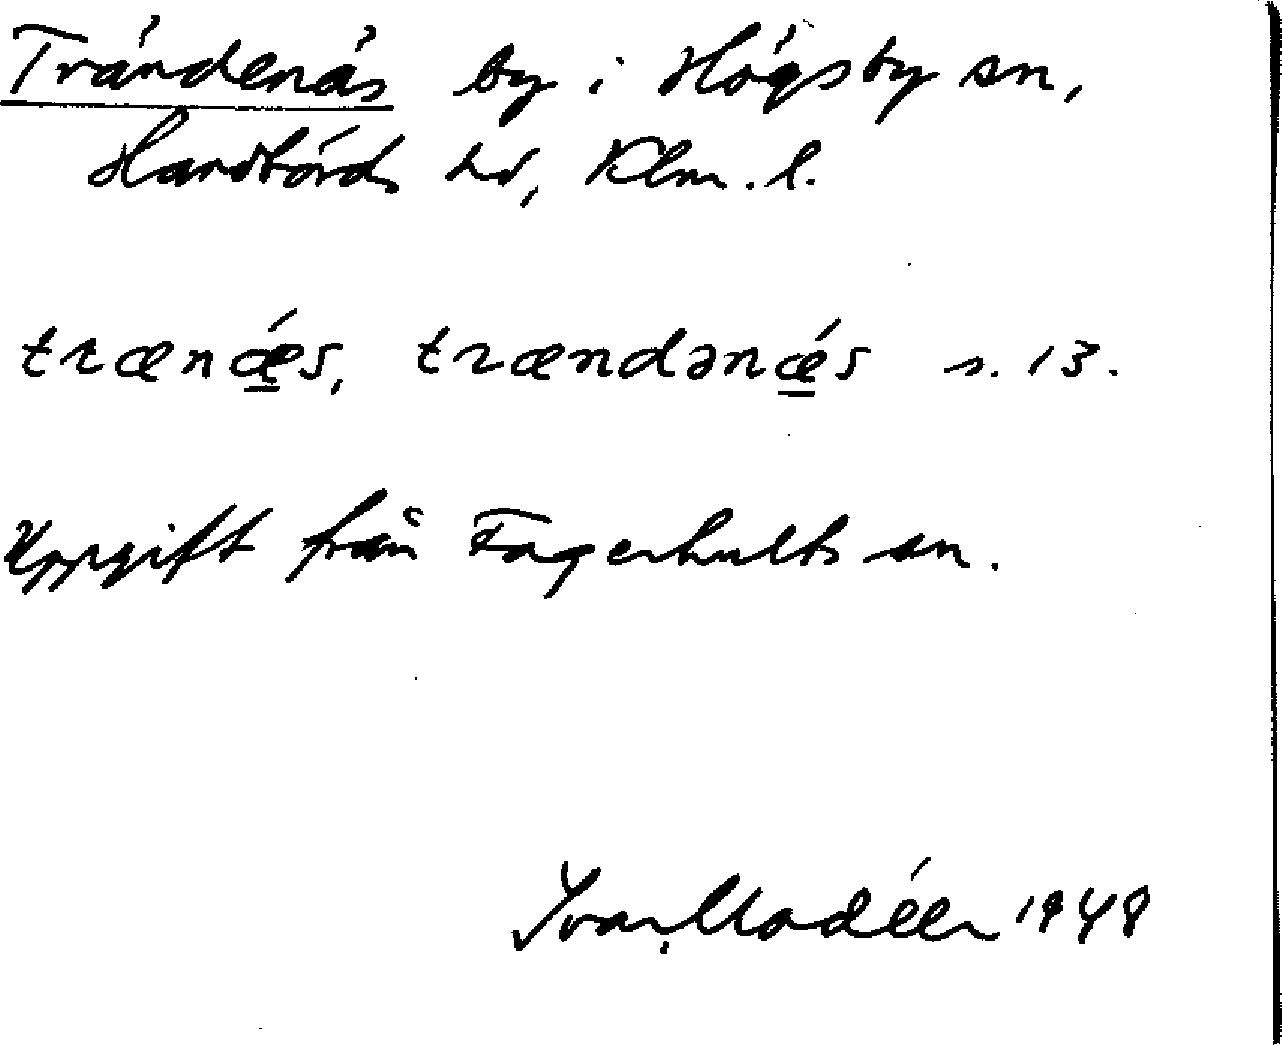 Trändenäs by i Högsby sn,
Handbörds hd, Klm. l.
trænǽs, trændənǽs s. 13.
Uppgift från Fagerhults sn.
Ivar Modéer 1948